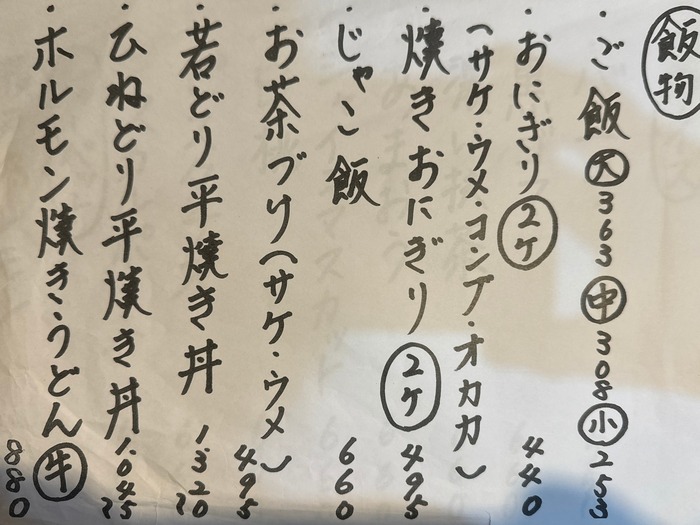 飯物
・ご飯 大 363 中 308 小 253
・おにぎり 2ケ 440
(サケ・ウメ・コンブ・オカカ)
・焼きおにぎり 2ケ 495
・じゃこ飯 660
・お茶づけ(サケ・ウメ) 495
・若どり平焼き丼 1,320
・ひねどり平焼き丼 1,045
・ホルモン焼きうどん 牛 880